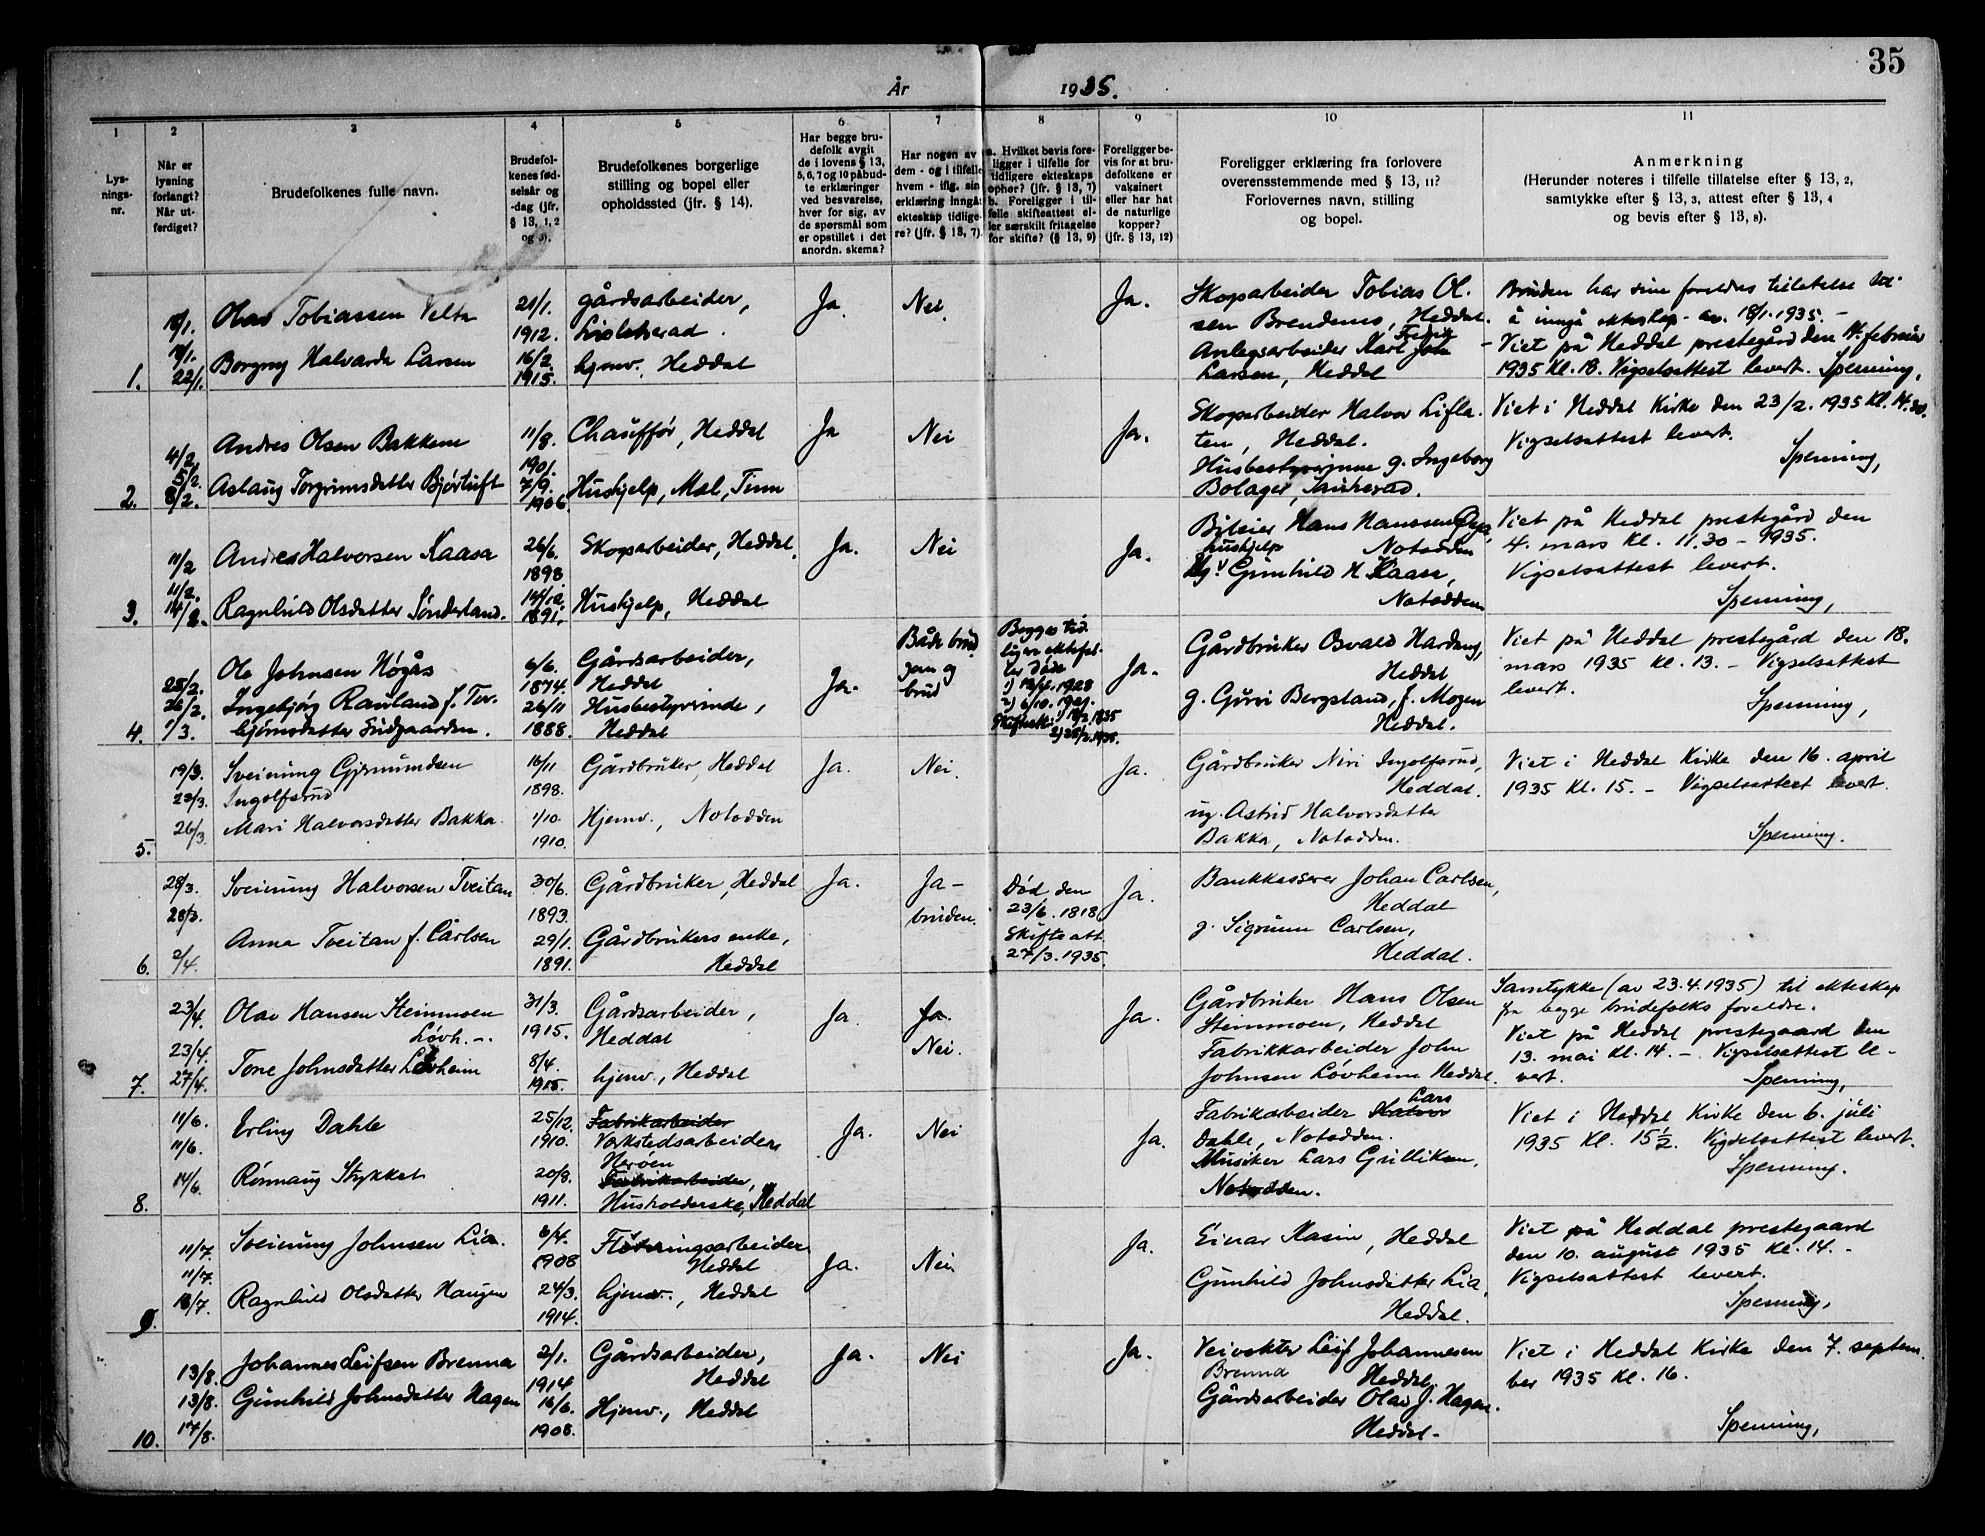 35
År 1935.
1 2 3 4 5 6 7 8 9 10 11
Lys-
nings-
nr.
Når er
lysning
forlangt?
Når ut-
ferdiget?
Brudefolkenes fulle navn.
Brudefol-
kenes fød-
selsår og
-dag (jfr.
§ 13, 1, 2
og 3).
Brudefolkenes borgerlige
stilling og bopel eller
opholdssted (jfr. § 14).
Har begge bru-
defolk avgit
de i lovens § 13,
5, 6, 7 og 10 påbud-
te erklæringer
ved besvarelse,
hver for sig, av
de spørsmål som
er opstillet i det
anordn. skema?
Har nogen av
dem - og i tilfelle
hvem - iflg. sin
erklæring inngåt
ekteskap tidlige-
re? (jfr. § 13, 7).
a. Hvilket bevis fore-
ligger i tilfelle for
tidligere ekteskaps
ophør? (jfr. § 13, 7)
b. Foreligger i til-
felle skifteattest el-
ler særskilt fritagelse
for skifte? (§ 13, 9)
Foreligger be-
vis for at bru-
defolkene er
vaksinert
eller har hat
de naturlige
kopper?
(jfr. § 13, 12)
Foreligger erklæring fra forlovere
overensstemmende med § 13, 11?
Forlovernes navn, stilling
og bopel.
Anmerkning
(Herunder noteres i tilfelle tillatelse efter § 13, 2,
samtykke efter § 13, 3, attest efter § 13, 4
og bevis efter § 13, 8).
1.
22/1.
Olav Tobiassen Velta
Borgny Halvarda Larsen
21/1.
1912.
16/2.
1915.
gårdsarbeider,
Lisleherad.
hjemv., Heddal
Ja.
Nei.
Ja.
Skogsarbeider Tobias Ol.
sen Brendemo, Heddal.
Anlegsarbeider Karl
Larsen, Heddal
Bruden har sine foreldres tillatelse til
å inngå ekteskap - av 18/1.1935. -
- Viet på Heddal prestegård den 14. februar
1935 kl. 18. Vigselsattest levert. Spenning,
2.
4/2.
5/2.
8/2.
Andres Olsen Bakkene
Aslaug Torgrimsdatter Bjørtuft
11/8.
1901.
7/9.
1906.
Chauffør, Heddal
Hushjelp, Mæl, Tinn
Ja
Nei
Ja.
Skogsarbeider Halvor Lifla-
ten, Heddal.
Husbestyrinne g. Ingeborg
Bolager, Sauherad.
Viet i Heddal kirke den 23/2. 1935 kl. 14.30.
Vigselsattest levert.
Spenning,
3.
11/2
11/2.
14/2.
Andres Halvorsen Kaasa
Ragnhild Olsdatter Sønderland.
26/6.
1898.
14/12.
1891.
Skogsarbeider, Heddal.
Hushjelp, Heddal
Ja.
Nei
Ja.
Bileier Hans Hanssen
hushjelp Notodden
Gunhild H. Kaasa,
Notodden
Viet på Heddal prestegård den
4. mars kl. 11.30 - 1935.
Vigselsattest levert.
Spenning,
4.
25/2.
26/2.
1/3.
Ole Johnsen Høgås
Ingebjørg Rauland f. Tor-
bjørnsdatter Sudgaarden.
6/6.
1874.
26/11
1888.
Gårdsarbeider,
Heddal
Husbestyrerinde,
Heddal
Ja.
Både brud
gom og
brud
Begges tid.
ligere ektefel-
ler døde
1) 12/4. 1928
2) 6/10. 1921.
Skifteatt: 1) 18/2. 1935
2) 25/2. 1935.
Ja.
Gårdbruker Osvald Hardang,
Heddal
g. Gurói Bergsland, f. Mogen
Heddal.
Viet på Heddal prestegård den 18.
mars 1935 kl. 13. - Vigselsattest
levert.
Spenning,
5.
19/3.
23/3.
26/3
Sveinung Gjermundsen
Ingolfsrud
Mari Halvorsdatter Bakka.
16/11
1898.
1/10.
1910.
Gårdbruker, Heddal
Hjemv., Notodden
Ja.
Nei.
Ja.
Gårdbruker Niri Ingolfsrud,
Heddal.
ug. Astrid Halvorsdatter
Bakka, Notodden.
Viet i Heddal Kirke den 16. april
1935 kl. 15. - Vigselsattest levert.
Spenning.
6.
28/3.
28/3.
2/4.
Sveinung Halvorsen Tveitan
Anna Tveitan f. Carlsen
30/6.
1893.
29/1.
1891.
Gårdbruker, Heddal
Gårdbrukers enke,
Heddal
Ja.
Ja -
bruden.
Død den
23/6. 1818
Skifteatt.
27/3. 1935.
Ja.
Bankkasserer Johan Carlsen,
Heddal
g. Sigrunn Carlsen,
Heddal.
7.
23/4.
23/4.
27/4.
Olav Hansen Steinmoen
Lovh.-.
Tone Johnsdatter Lovheim
31/3.
1915.
8/4.
1915.
Gårdsarbeider,
Heddal
hjemv., Heddal
Ja.
Ja.
Nei.
Ja.
Gårdbruker Hans Olsen
Steinmoen, Heddal
Fabrikkarbeider John
Johnsen Lovheim Heddal.
Samtykke (av 23.4.1935) til ekteskap
fra begge brudefolks foreldre.
Viet på Heddal prestegaard den
13. mai kl. 14. -. Vigselsattest le-
vert. Spenning,
8.
11/6.
11/6.
14/6.
Erling Dahle
Rønnaug Stykket
25/12.
1910.
20/8.
1911.
Fabrikarbeider
Verkstedsarbeider
Herøen
Fabrikarbeider,
Husholderske, Heddal
Ja.
Nei
Ja.
Lars
Fabrikarbeider Halvor
Dahle, Notodden.
Musiker Lars Gulliksen,
Notodden.
Viet i Heddal Kirke den 6. juli
1935 kl. 15½. Vigselsattest levert.
Spenning.
9.
11/7.
11/7.
16/7.
Sveinung Johnsen Lia.
Ragnhild Olsdatter Haugen
6/4.
1908
24/3.
1914.
Fløtningsarbeider
Heddal
hjemv., Heddal
Ja.
Nei
Ja.
Einar Kasin, Heddal
Gunhild Johnsdatter Lia,
Heddal.
Viet på Heddal prestegaard
den 10. august 1935 kl. 14. -
Vigselsattest levert.
Spenning,
10.
13/8.
13/8.
17/8.
Johannes Leifsen Brenna
Gunhild Johnsdatter Hagen
2/1.
1914
16/6.
1908.
Gårdsarbeider,
Heddal
Hjemv., Heddal
Ja.
Nei
Ja.
Veivokter Leif Johannesen
Brenna Heddal.
Gårdsarbeider Olav J. Hagen.
Heddal.
Viet i Heddal Kirke den 7. septem.
ber 1935 kl. 16.
Spenning,